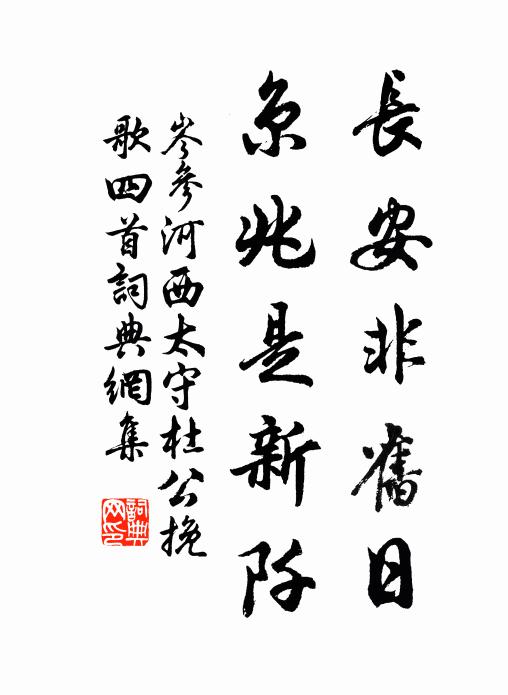 長安非舊日
京兆是新阡
岑參河西太守杜公挽
歌四首詞典網集
詞典
网印